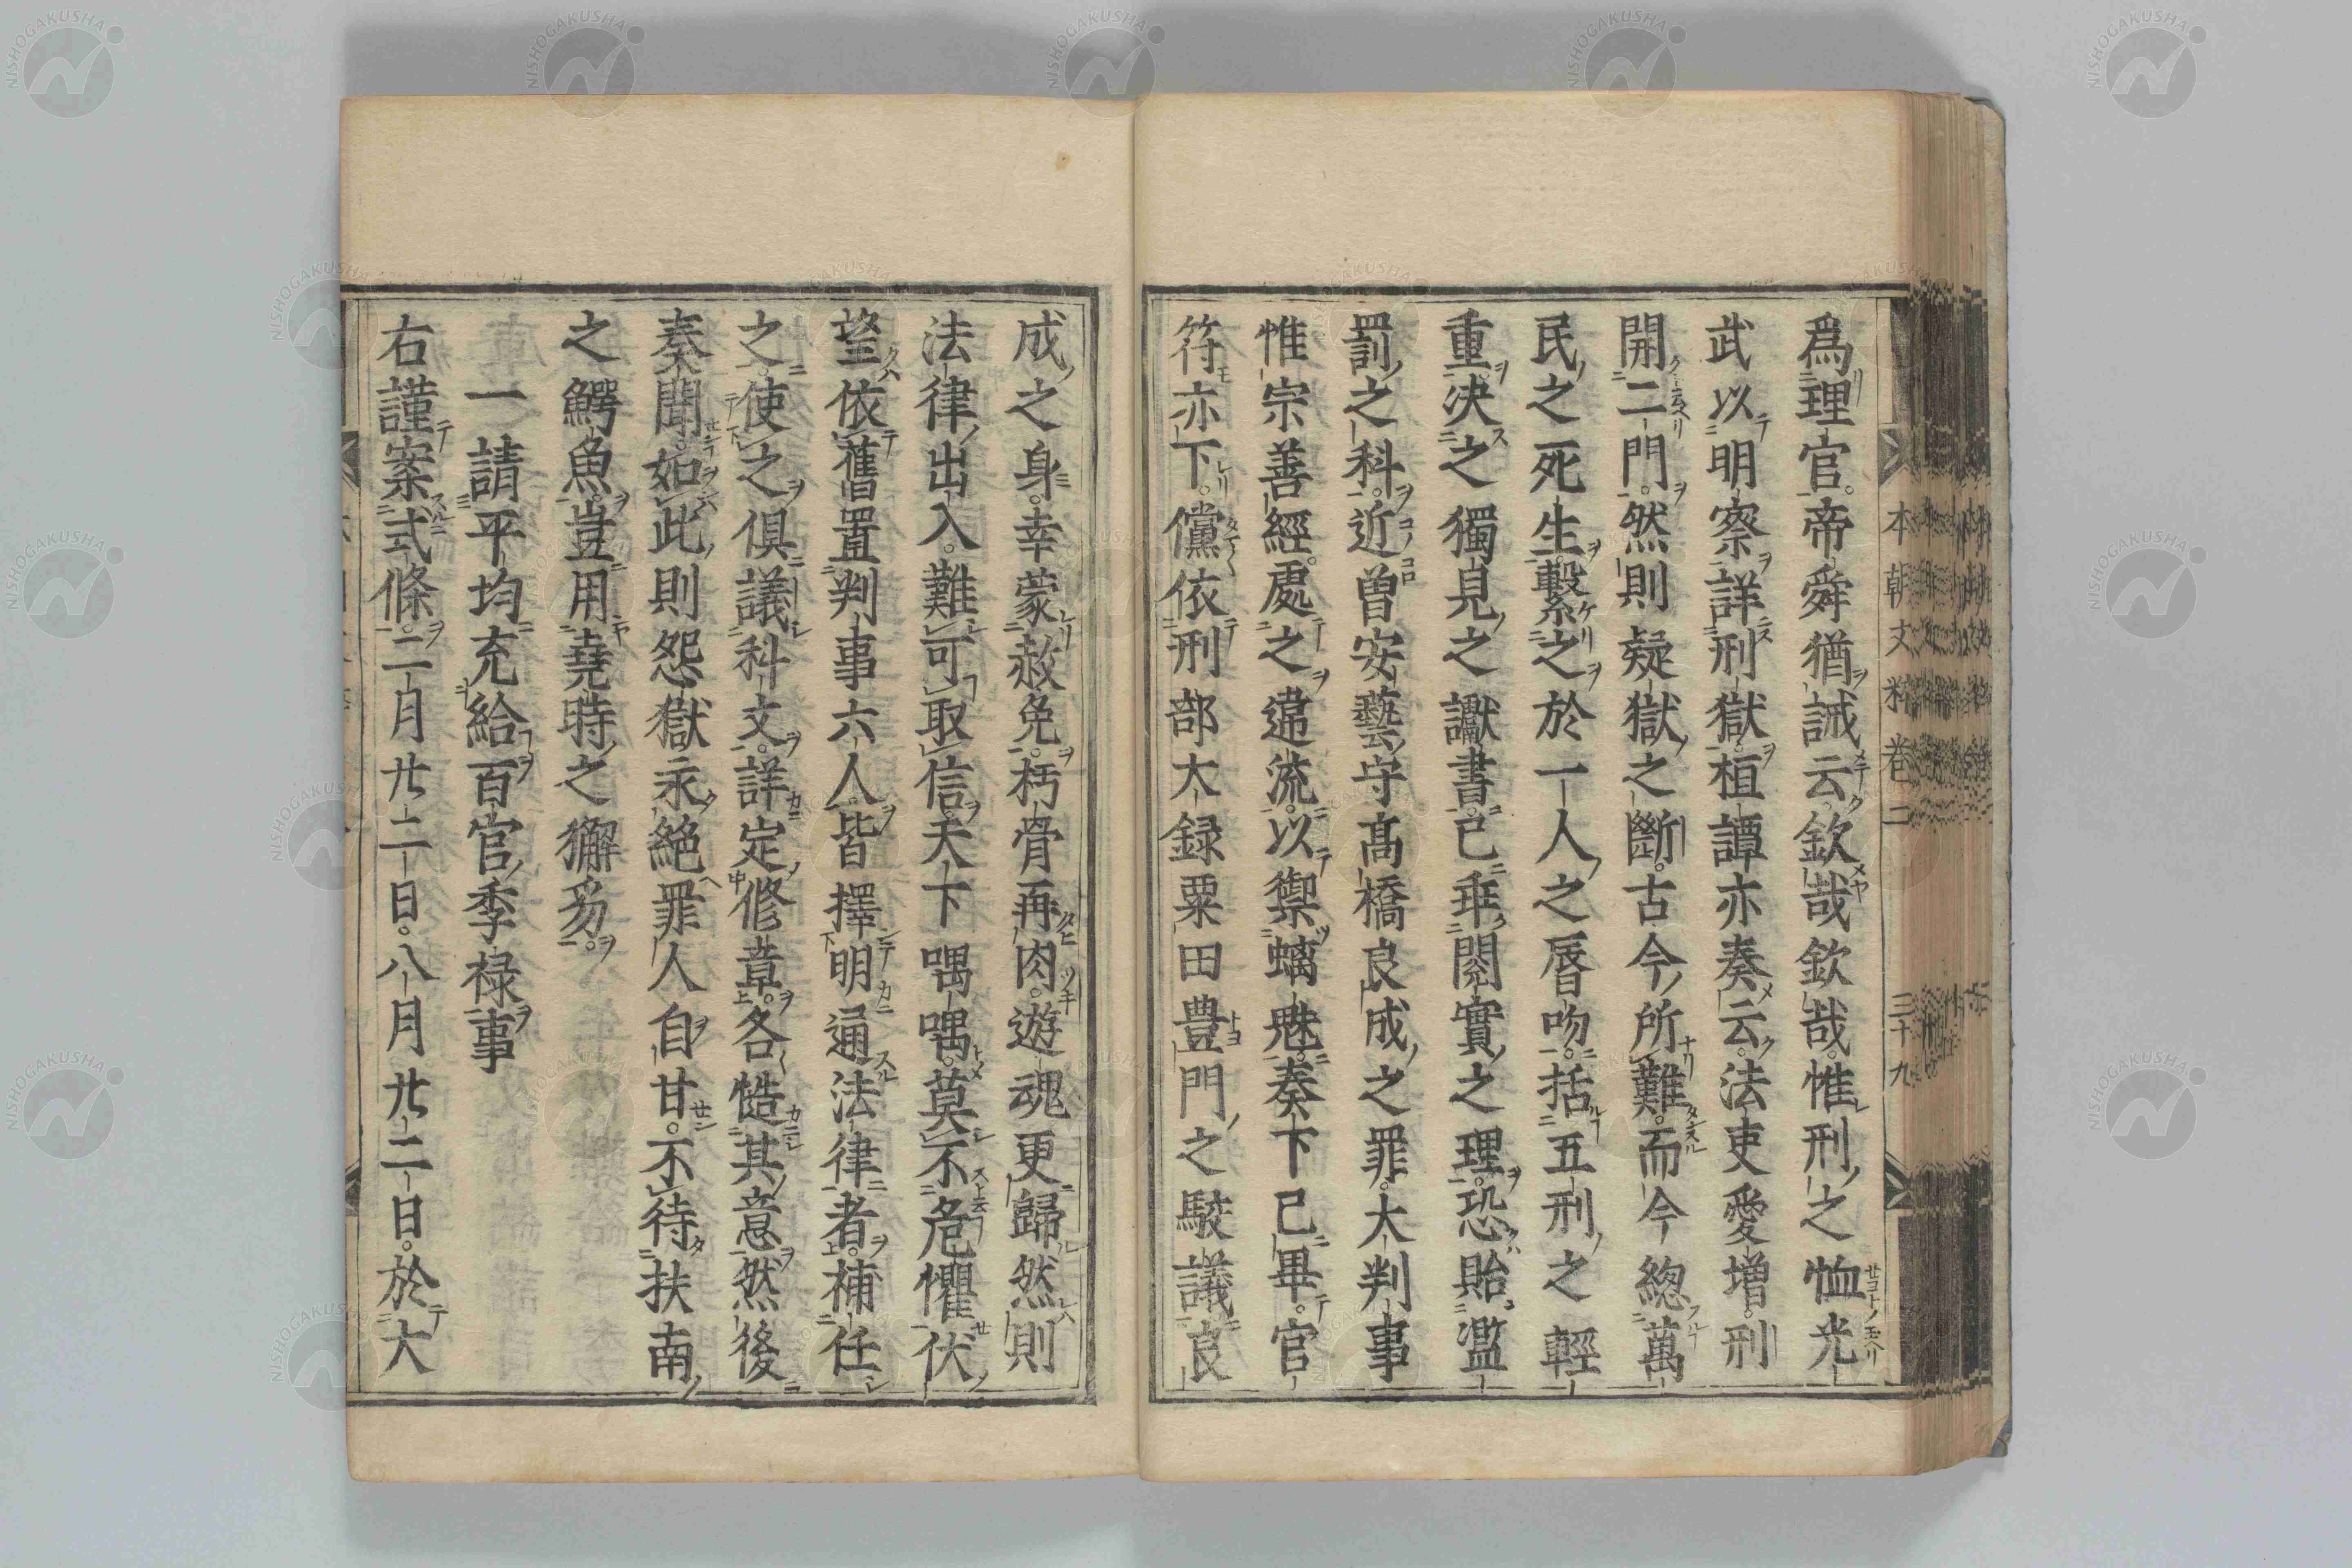 爲理官。帝舜猶誡云。欽哉欽哉。惟刑之恤。光
武以明察詳刑獄。桓譚亦奏云。法吏愛增。刑
開二門。然則疑獄之斷。古今所難。而今總萬
民之死生。繫之於一人之唇吻。括五刑之輕
重。决之獨見之讞書。已乖閱實之理。恐貽濫
罰之科。近曾安藝守髙橋良成之罪。大判事
惟宗善經。處之違流。以禦螭魅。奏下已畢。官
符亦下。儻依刑部大録粟田豊門之駮議。良
成之身。幸蒙赦免。朽骨再肉。遊魂更歸。然則
法律出入。難可取信。天下喁喁。莫不危懼。伏
望依舊置判事六人。皆擇明通法律者。補任
之。使之俱議科文。詳定修章。各愷其意。然後
奏聞。如此則怨獄永絕。罪人自甘。不待扶南
之鰐魚。豈用堯時之獬豸。
一請平均充給百官季禄事
右謹案式條。二月廿二日。八月廿二日。於大
本朝文粹卷二 三十九